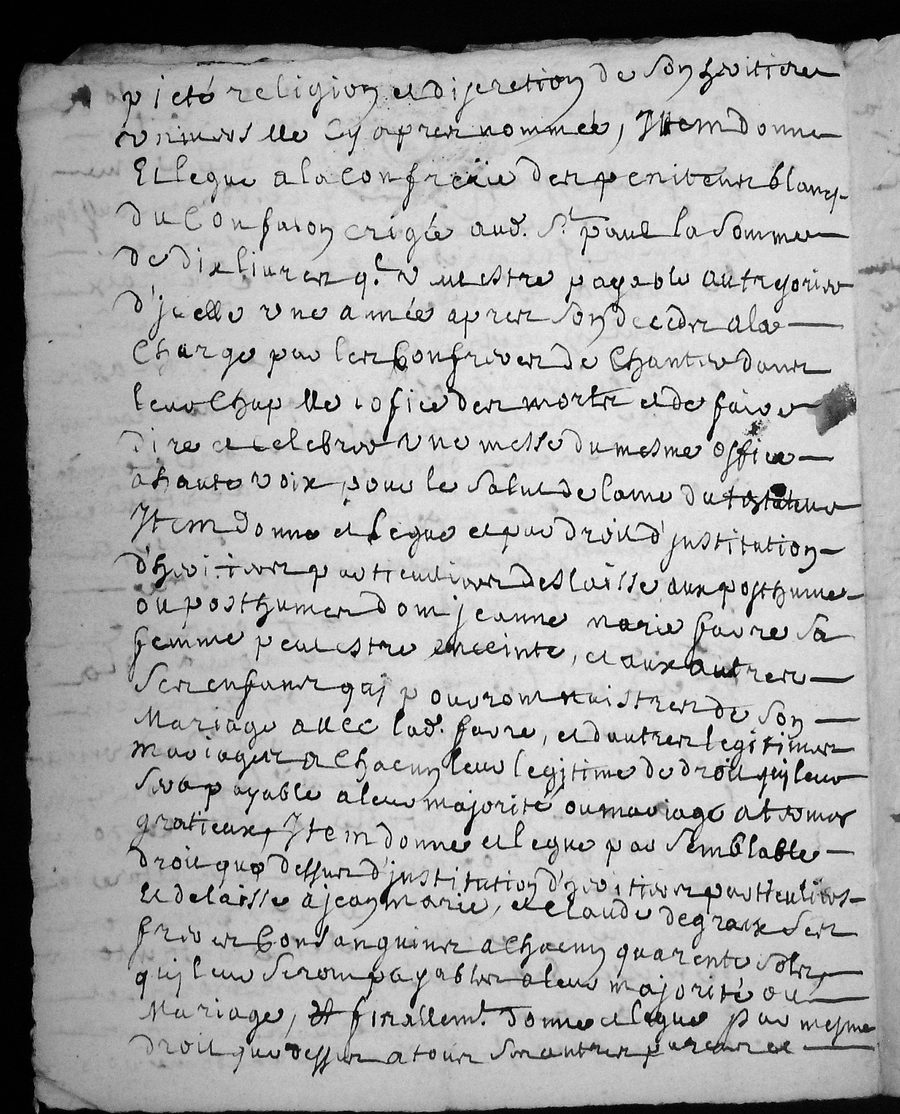 pieté religion et discretion de son heritiere
universelle cy apres nommée, Item donne
Et legue a la Confrerie des penitens blancs
du Confalon erigée aud. St. paul la somme
de dix livres ql. veut estre payable au tresorier
d'jcelle une année apres son decedz a la
Charge par les Confreres de Chanter dans
leur Chappelle lofice des morts et de faire
dire et celebrer une messe du mesme office
a haute voix pour le salut de lame du testateur
Item donne et legue et par droit d'jnstitution
d'heritier particullier deslaisse aux posthume
ou posthumes dont jeanne marie favre sa
femme peut estre enceinte, et aux autres
ses enfans quj pourront naistres de son
Mariage avec lad. favre, et dautres legitimes
mariages a Chacun leur legitime de droit quj leur
sera payable a leur majorité ou mariage a termes
gratieux, Item donne et legue par semblable
droit que dessus d'jnstitution d'heritier particulier
Et delaisse a jean marie, et claude degraix ses
freres Consanguins a Chacun quarente sols,
quj leur seront payables a leur majorité ou
Mariage, Et finallemt. donne et legue par mesme
droit que dessus a tous ses autres parens et